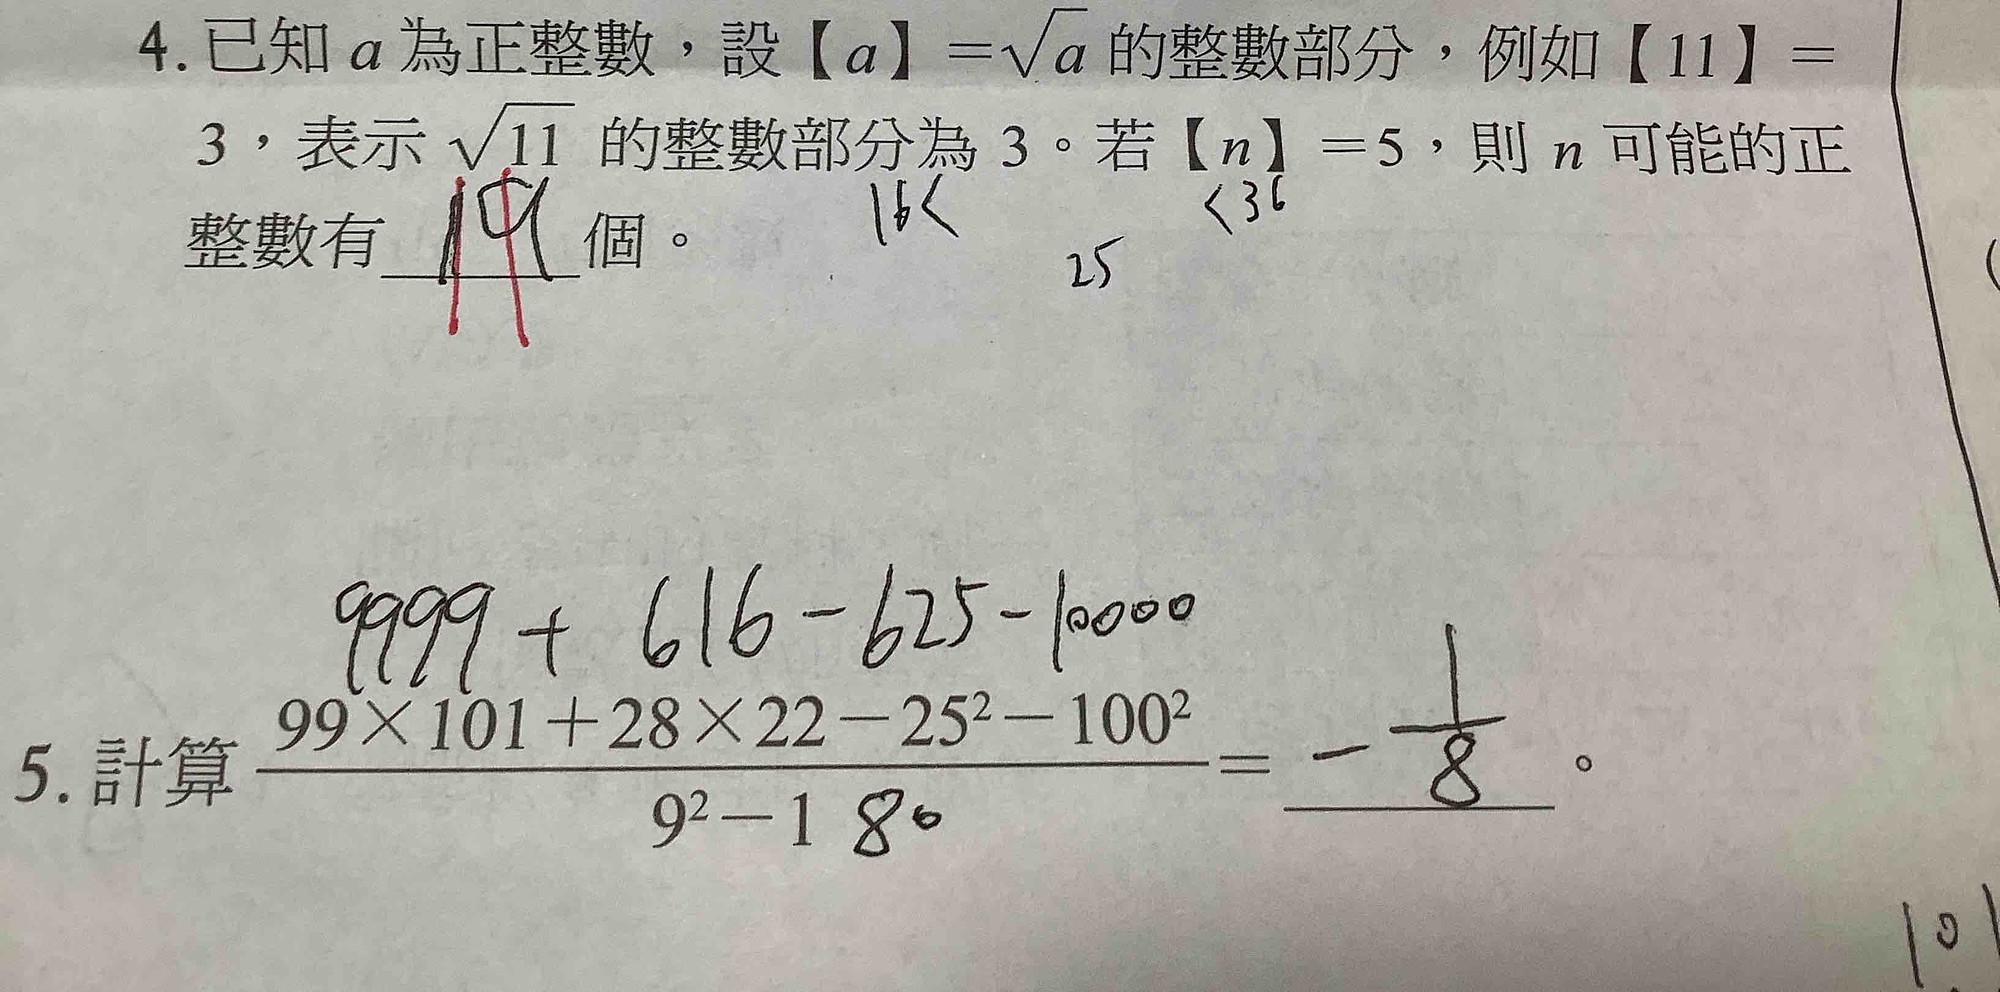 4. 已知 a 為正整數，設【a】＝√a 的整數部分，例如【11】＝
3，表示 √11 的整數部分為 3。若【n】＝5，則 n 可能的正
16<
<36
整數有 19 個。
25
9999 + 616 - 625 - 10000
5. 計算 (99×101＋28×22－25²－100²)/(9²－1) ＝ -1/8 。
80
10